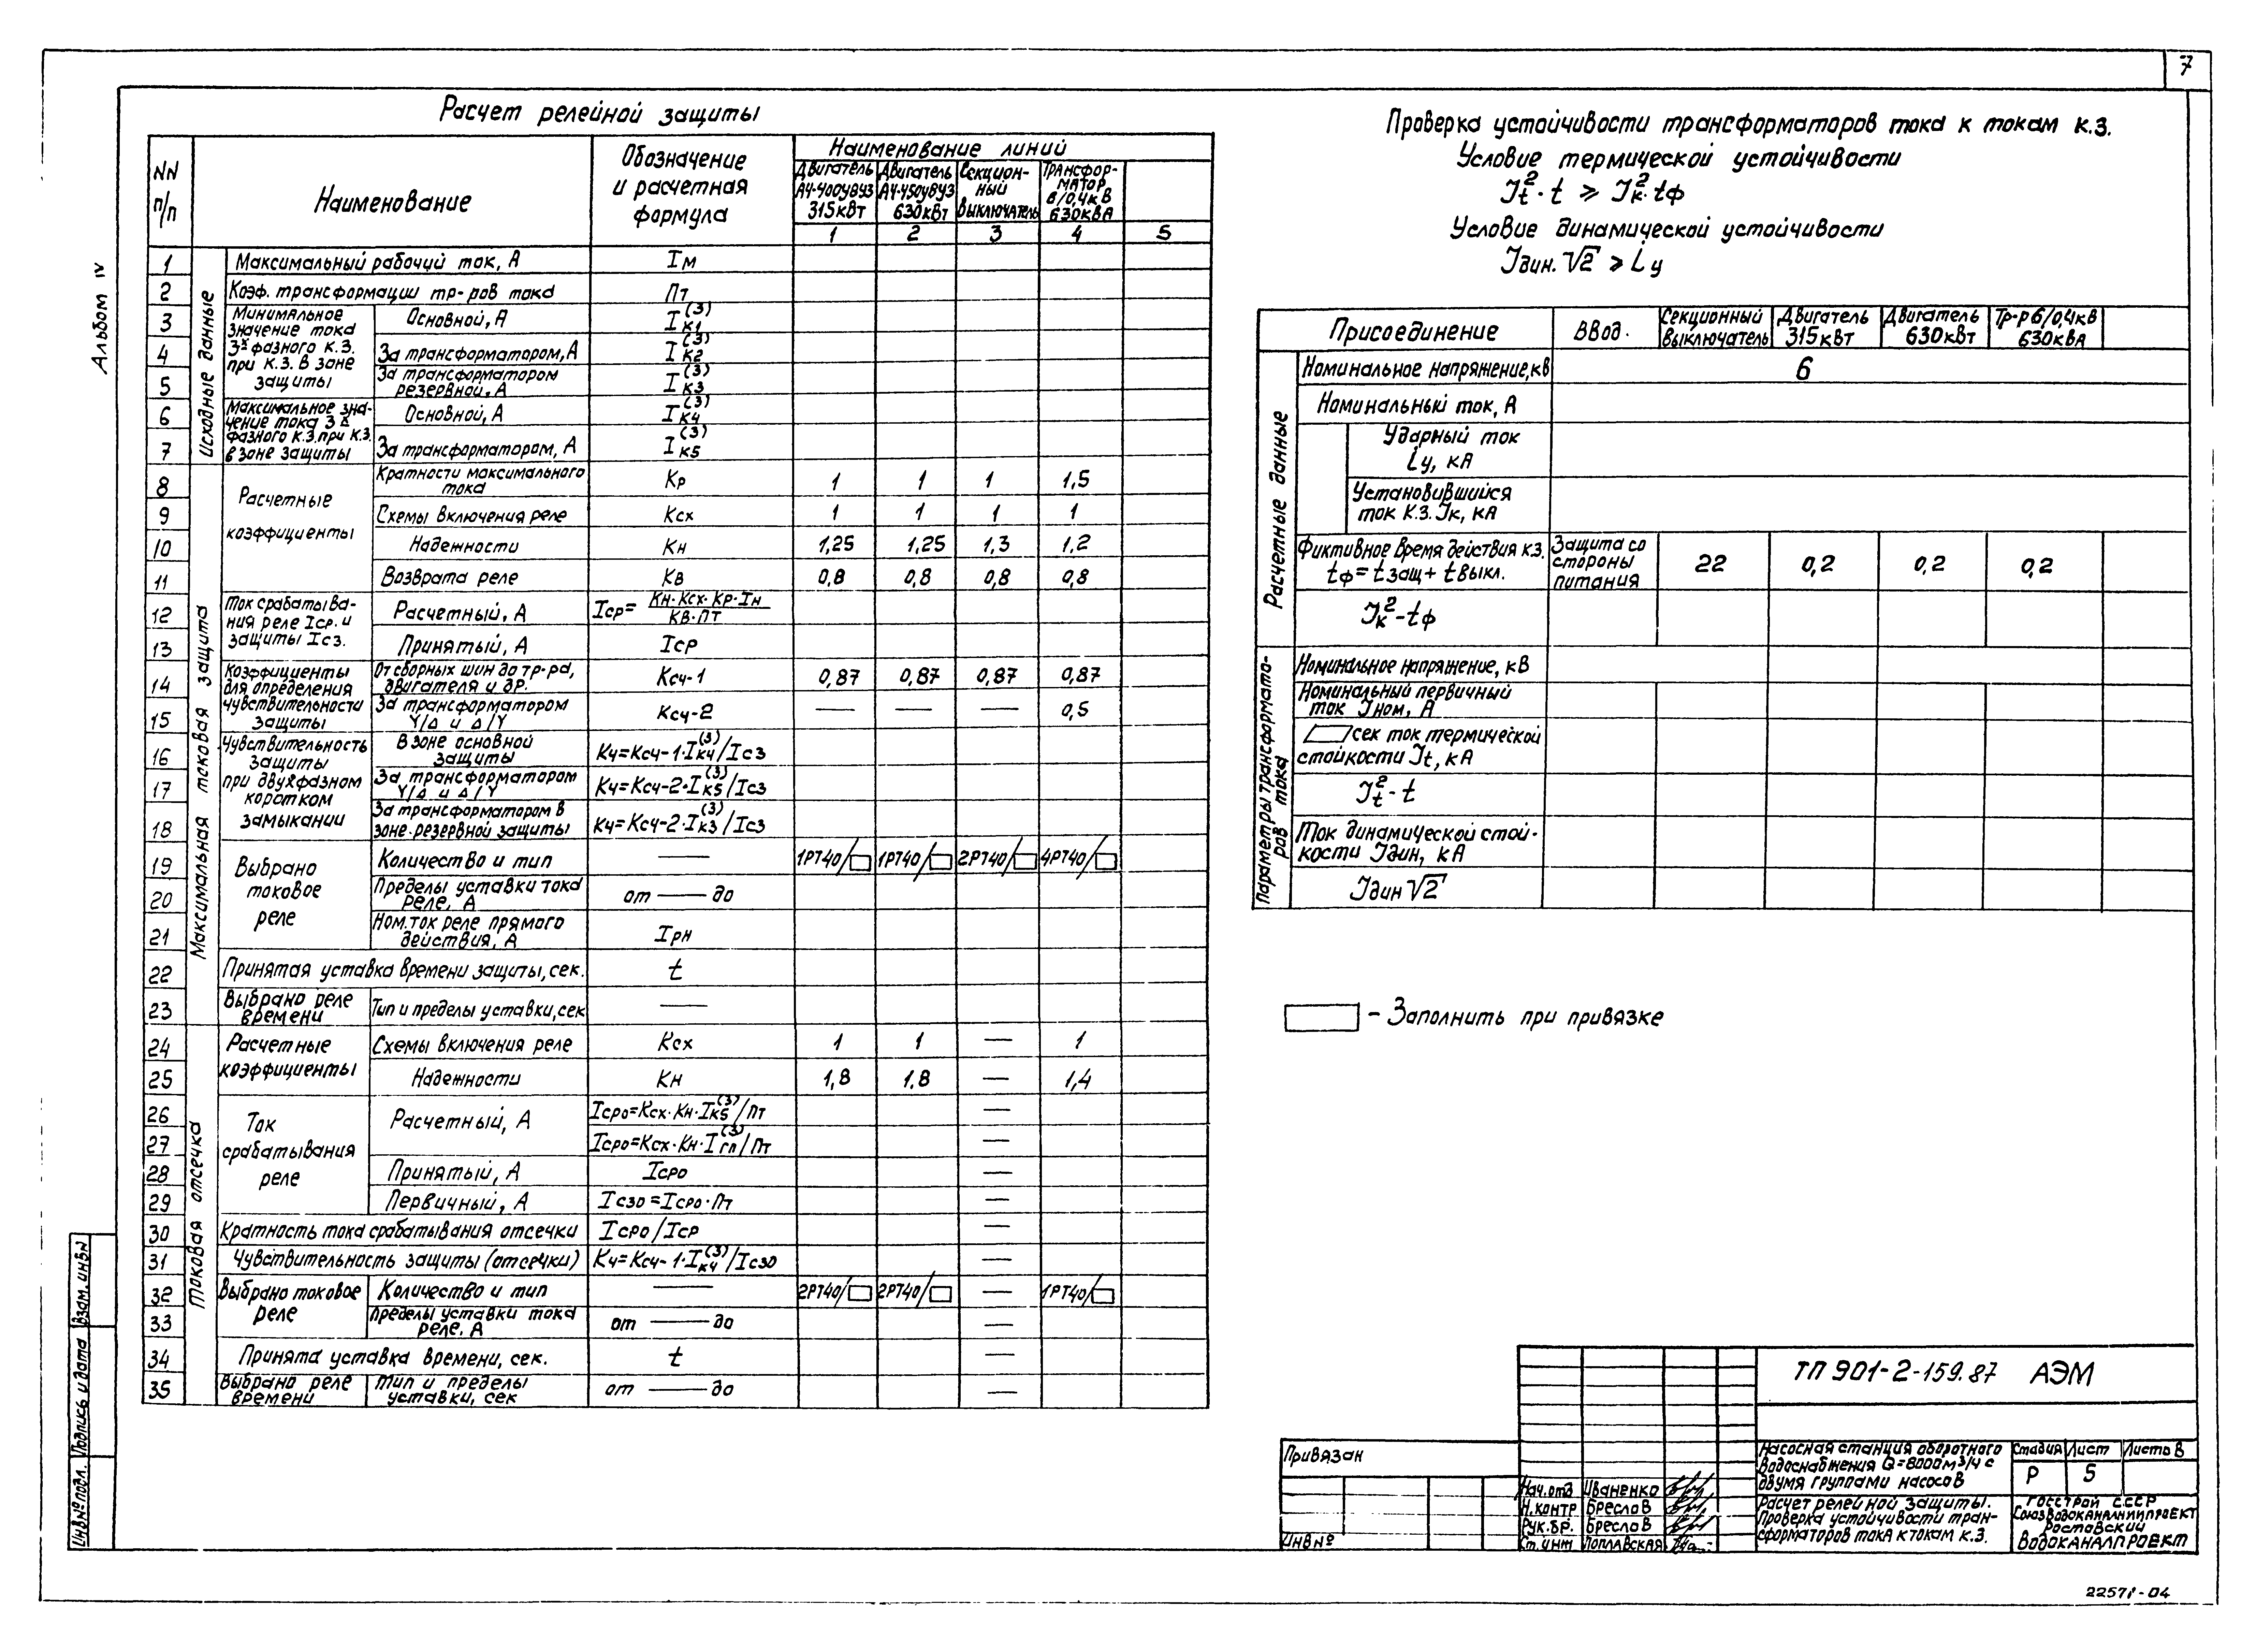 7
Альбом IV
Расчет релейной защиты
NN п/п
Наименование
Обозначение и расчетная формула
Наименование линий
Двигатель А4-400У8У3 315кВт
Двигатель А4-450У8У3 630кВт
Секционный выключатель
Трансформатор 6/0,4кВ 630кВА
1 2 3 4 5
Исходные данные
1 Максимальный рабочий ток, А Iм
2 Коэф. трансформации тр-ров тока Пт
Минимальное значение тока 3х фазного к.з. при к.з. в зоне защиты
3 Основной, А I к1 (3)
4 За трансформатором, А I к2 (3)
5 За трансформатором резервной, А I к3 (3)
Максимальное значение тока 3х фазного к.з. при к.з. в зоне защиты
6 Основной, А I к4 (3)
7 За трансформатором, А I к5 (3)
Максимальная токовая защита
Расчетные коэффициенты
8 Кратности максимального тока Кр 1 1 1 1,5
9 Схемы включения реле Ксх 1 1 1 1
10 Надежности Кн 1,25 1,25 1,3 1,2
11 Возврата реле Кв 0,8 0,8 0,8 0,8
Ток срабатывания реле Iср. и защиты Iсз.
12 Расчетный, А Iср= Кн·Ксх·Кр·Iн / Кв·Пт
13 Принятый, А Iср
Коэффициенты для определения чувствительности защиты
14 От сборных шин до тр-ра, двигателя и др. Ксч-1 0,87 0,87 0,87 0,87
15 За трансформатором Y/Δ и Δ/Y Ксч-2 — — — 0,5
Чувствительность защиты при двухфазном коротком замыкании
16 В зоне основной защиты Кч=Ксч-1·Iк4(3)/Iсз
17 За трансформатором Y/Δ и Δ/Y Кч=Ксч-2·Iк5(3)/Iсз
18 За трансформатором в зоне резервной защиты Кч=Ксч-2·Iк3(3)/Iсз
Выбрано токовое реле
19 Количество и тип — 1РТ40/ 1РТ40/ 2РТ40/ 4РТ40/
20 Пределы уставки тока реле, А от — до
21 Ном. ток реле прямого действия, А Iрн
22 Принятая уставка времени защиты, сек. t
23 Выбрано реле времени Тип и пределы уставки, сек —
Токовая отсечка
Расчетные коэффициенты
24 Схемы включения реле Ксх 1 1 — 1
25 Надежности Кн 1,8 1.8 — 1,4
Ток срабатывания реле
26 Расчетный, А Iсро=Ксх·Кн·Iк5(3)/Пт —
27 Iсро=Ксх·Кн·Iгп(3)/Пт —
28 Принятый, А Iсро —
29 Первичный, А Iсзо=Iсро·Пт —
30 Кратность тока срабатывания отсечки Iсро/Iср —
31 Чувствительность защиты (отсечки) Кч=Ксч-1·Iк4(3)/Iсзо —
Выбрано токовое реле
32 Количество и тип — 2РТ40/ 2РТ40/ — 1РТ40/
33 Пределы уставки тока реле, А от — до —
34 Принята уставка времени, сек. t —
35 Выбрано реле времени Тип и пределы уставки, сек от — до —
Проверка устойчивости трансформаторов тока к токам к.з.
Условие термической устойчивости
Jt²·t ⩾ Jк²·tф
Условие динамической устойчивости
Jдин.√2 ⩾ iу
Присоединение Ввод. Секционный выключатель Двигатель 315кВт Двигатель 630кВт Тр-р 6/0,4кв 630кВА
Расчетные данные
Номинальное напряжение, кв 6
Номинальный ток, А
Ударный ток iу, кА
Установившийся ток к.з. Jк, кА
Фиктивное время действия к.з. tф=tзащ+tвыкл. Защита со стороны питания 22 0,2 0,2 0,2
Jк²-tф
Параметры трансформаторов тока
Номинальное напряжение, кВ
Номинальный первичный ток Jном, А
сек ток термической стойкости Jt, кА
Jt²-t
Ток динамической стойкости Jдин, кА
Jдин√2
- Заполнить при привязке
ТП 901-2-159.87 АЭМ
Привязан
Инв№
Нач.отд Иваненко
Н.контр Бреслов
Рук.бр. Бреслов
Ст.инж Поплавская
Насосная станция оборотного
водоснабжения Q=8000м3/ч с
двумя группами насосов
Стадия Лист Листов
Р 5
Расчет релейной защиты.
Проверка устойчивости тран-
сформаторов тока к токам к.з.
Госстрой СССР
Союзводоканалниипроект
Ростовский
Водоканалпроект
Инв№подл. Подпись и дата Взам.инв№
22571-04